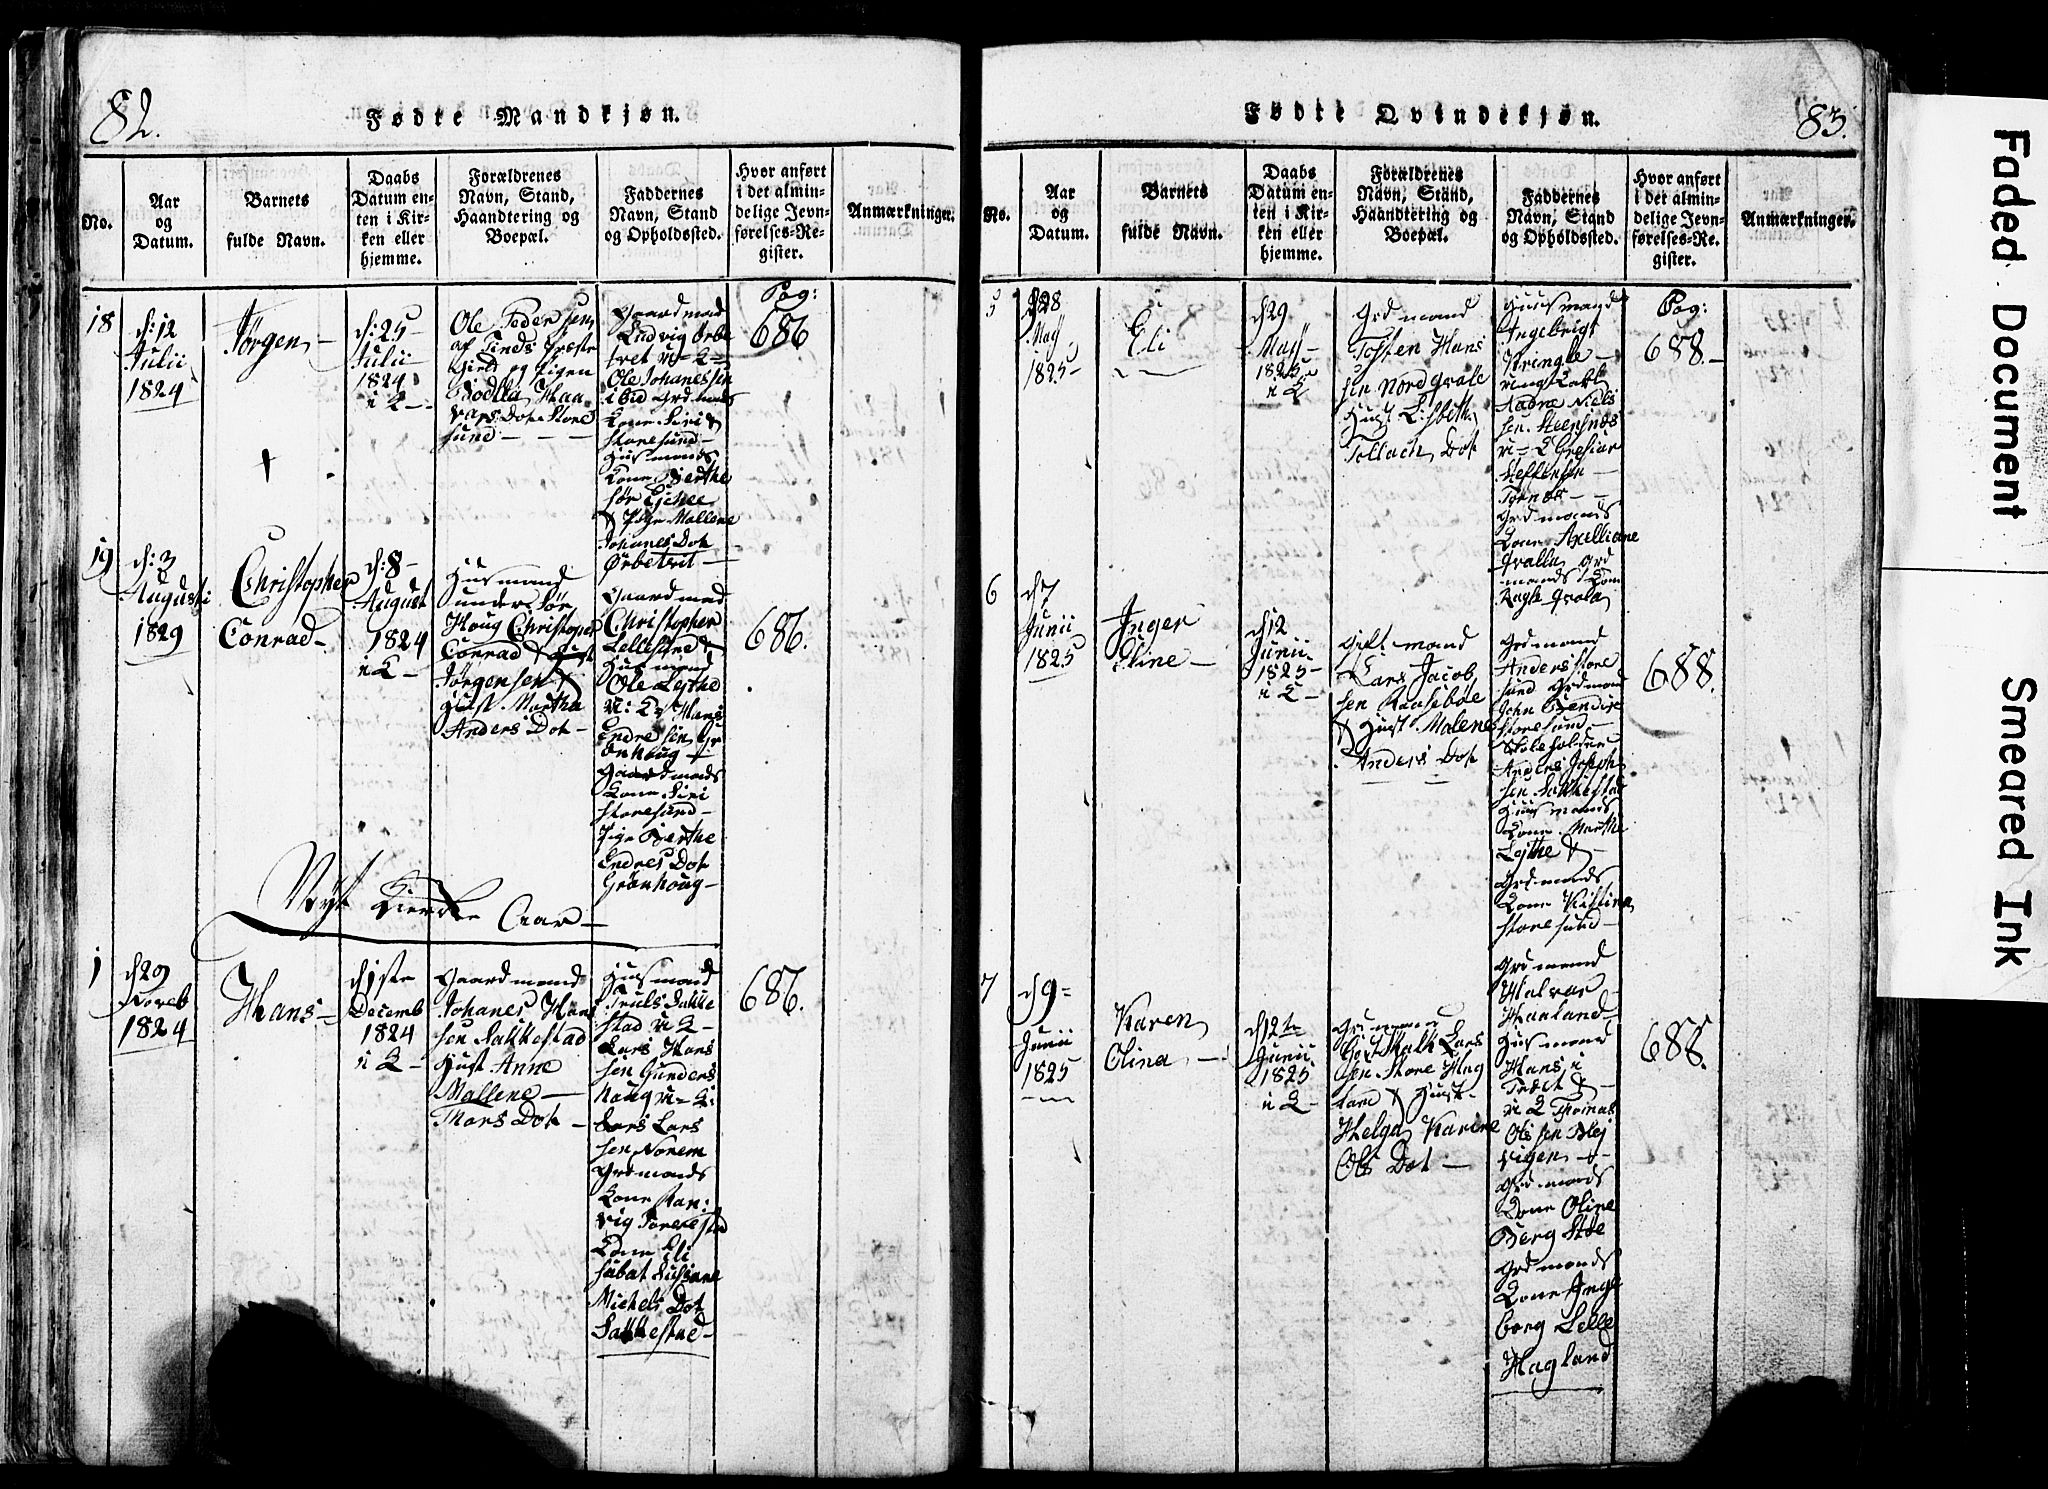 82.
Fødte Mandkjøn.
No.
Aar
og
Datum.
Barnets
fulde Navn.
Daabs
Datum en-
ten i Kir-
ken eller
hjemme.
Forældrenes
Navn, Stand,
Haandtering og
Boepæl.
Faddernes
Navn, Stand
og Opholdssted.
Hvor anført
i det almin-
delige Jevn-
førelses-Re-
gister.
Anmærkninger.
18
d: 12
Julii
1824
Jørgen
d: 25
Julii
1824
i K
Ole Peders­en
af Finds Præste
gield og Pigen
Haa
vars Dot Store
sund
Gaardmand
Ludvig Ørbe
tvet
Ole Johanessen
ibid Grdmands
Kone Siri
Storesund
Husmands
Kone Berthe
Pige Mallene
Johanes Dot
Ørbetvet
Pag:
686
19
d: 3
Augusti
1829
Christopher
Conrad
d: 8
August
1824
i K
Husmand
under Sør
Houg Christopher
Conrad
Jørgensen
Hust Martha
Anders Dot
Gaardmand
Christopher
Husmand
Ole Lejthe
Hans
Endresen Gr
ønhoug
Gaardmands
Kone Siri
Storesund
Pige Berthe
Endres Dot
Grønhoug
686.
Nyt Kierke Aar
1
d 29
Novemb
1824
Hans
d 1ste
Decemb
1824
i K
Gaardmand
Johanes Han
sen Sakkestad
Hust Anne
Mallene
Thors Dot
Husmand
Truls Sakke
stad
Lars Hans
sen Gunders
houg
Lars Lars
sen Norem
Grdmands
Kone Ran:
vig
Kone Eli
Michels Dot
Sakkestad
686.
83.
Fødte Qvindekjøn.
No.
Aar
og
Datum.
Barnets
fulde Navn.
Daabs
Datum en-
ten i Kir-
ken eller
hjemme.
Forældrenes
Navn, Stand,
Haandtering og
Boepæl.
Faddernes
Navn, Stand
og Opholdssted.
Hvor anført
i det almin-
delige Jevn-
førelses-Re-
gister.
Anmærkninger.
5
d 28
May
1825
Eli
d 29
May
1825
i K
Grdmand
Tosten Hans
sen Nord
Hust Lisbeth
Dot
Husmand
Ingebrigt
Kringle
Niels
sen
Steffensen
Tornes
Grdmands
Kone Axelliane
Grd
mands Kone
Pag:
688.
6
d 7
Junii
1825
Inger
Eline
d 12
Junii
1825
i K
Gift mand
Lars Jacob
sen
Hust Malene
Anders Dot
Grdmand
Anders Store
sund Grdmand
John
Storesund
Skoleholder
Anders Joseph
sen Sakkestad
Husmands
Kone Marthe
Lejthe
Grdmands
Kone Kistina
Storesund
688.
7
d 9
Junii
1825
Karen
Olina
d 12te
Junii
1825
i K
Lars
sen Store Hag
land Hust
Helga Karine
Ols Dot
Grdmand
Halvar
Haaland
Husmand
Hans i
Thomas
Olssen Blej
vigen
Grdmands
Kone Oline
Berg
Grdmands
Kone Inge
borg Lille
Hagland
688.
Faded Document
Smeared Ink